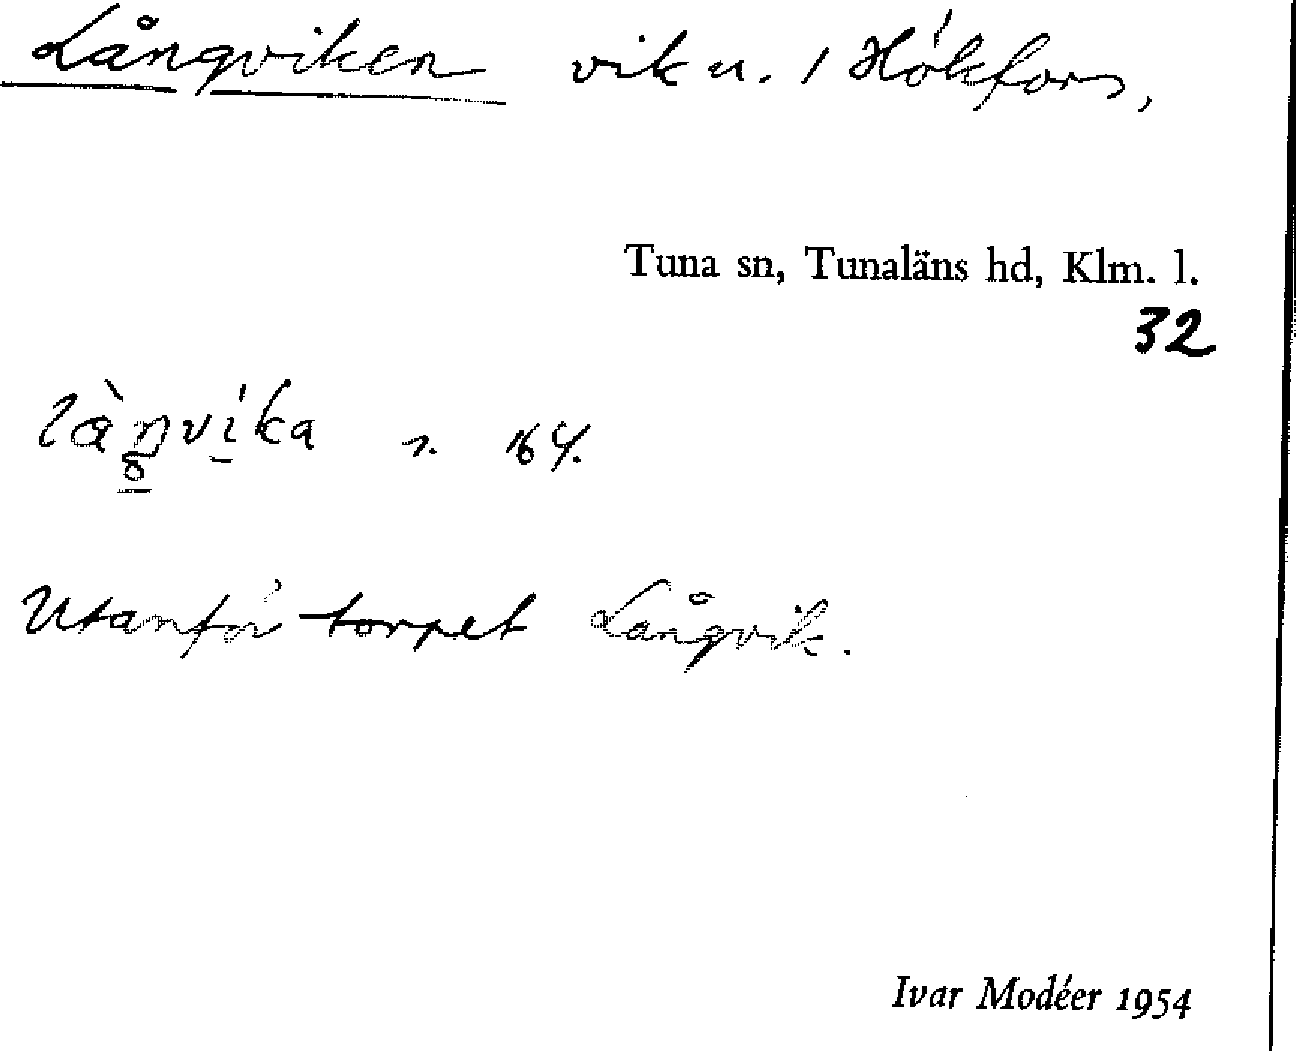 Långviken vik u. / Hökfors,
Tuna sn, Tunaläns hd, Klm. l.
32
Utanför torpet Långvik.
Ivar Modéer 1954